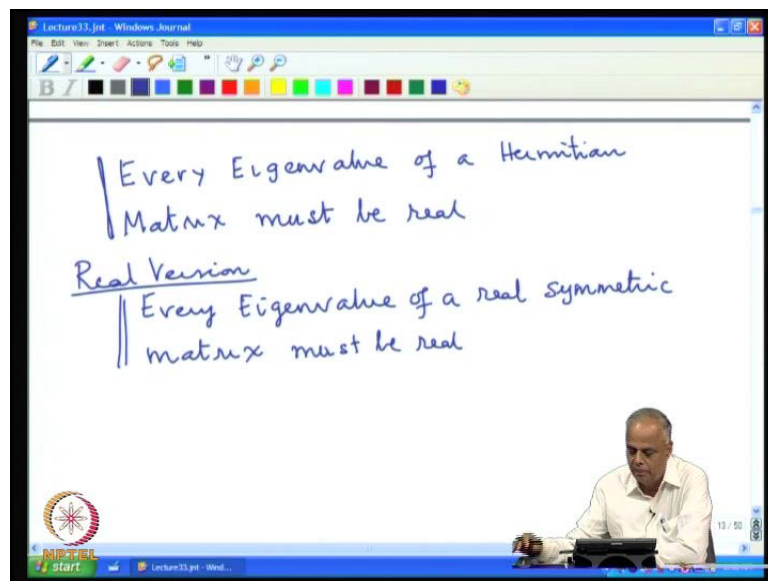 Lecture33.jnt - Windows Journal
File Edit View Insert Actions Tools Help
B I
Every Eigenvalue of a Hermitian
Matrix must be real
Real Version
Every Eigenvalue of a real symmetric
matrix must be real
13 / 50
NPTEL
start
Lecture33.jnt - Wind...